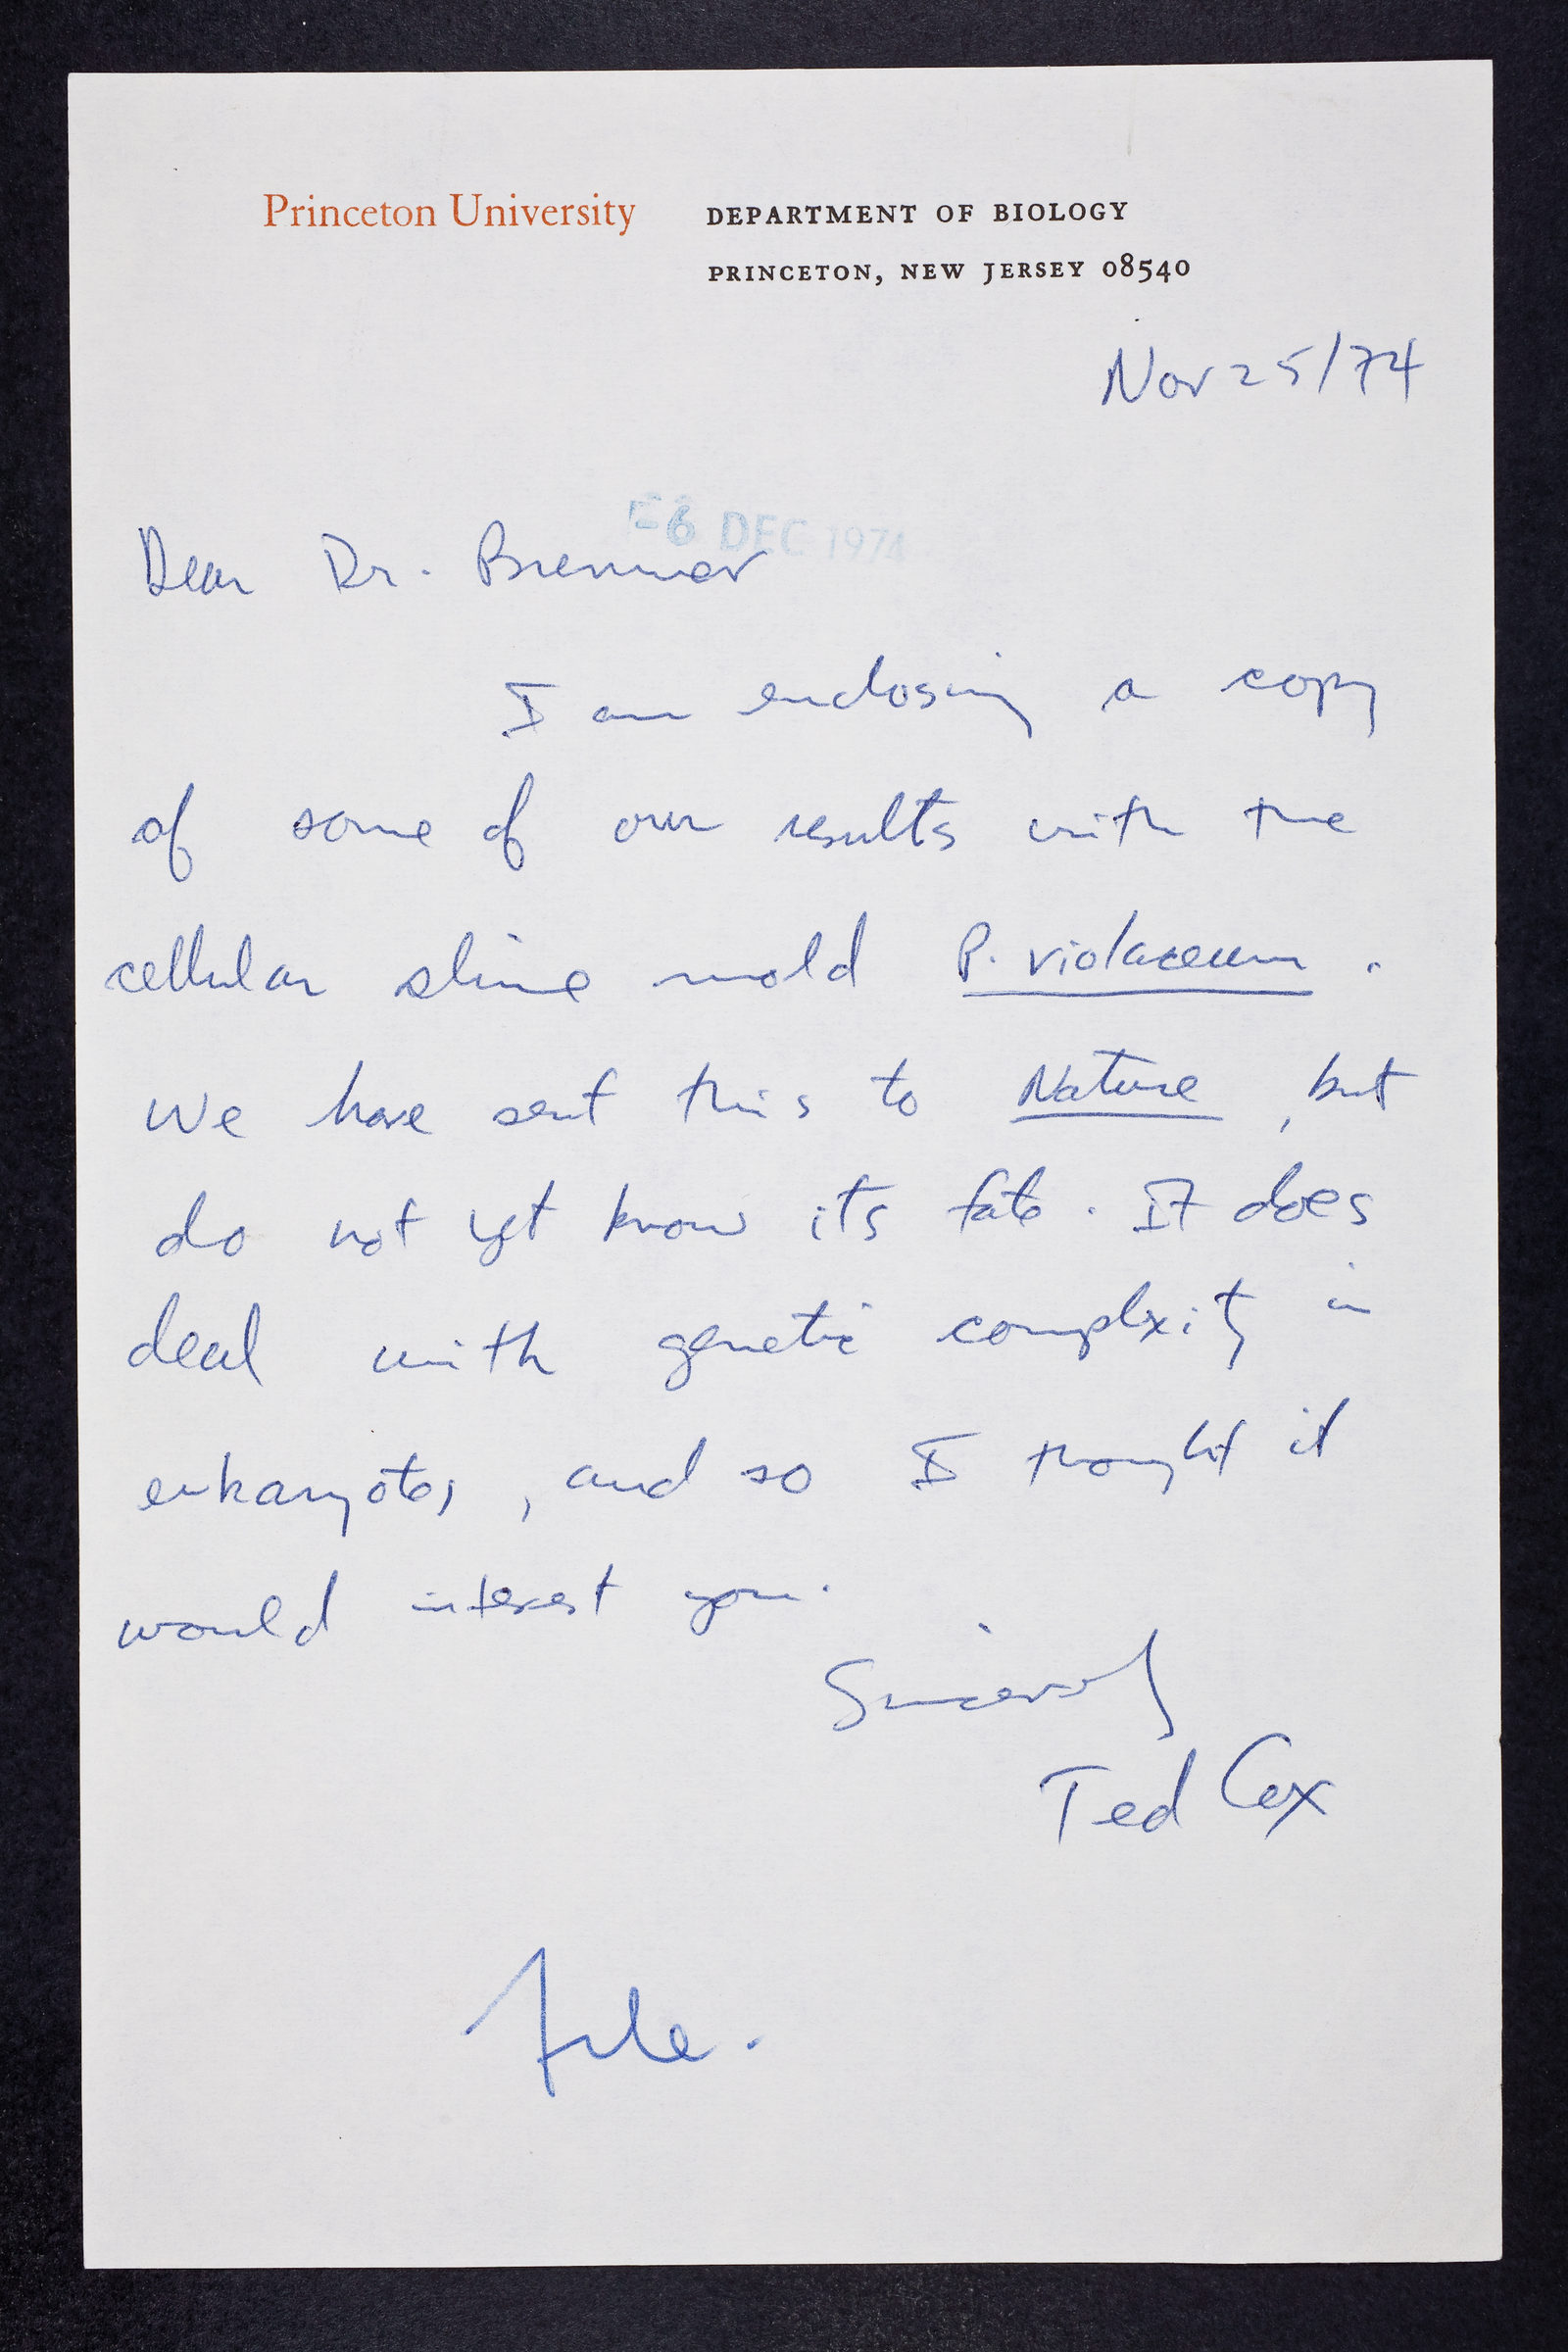 Princeton University DEPARTMENT OF BIOLOGY
PRINCETON, NEW JERSEY 08540
Nov 25/74
-6 DEC 1974
Dear Dr. Brenner
I am enclosing a copy
of some of our results with the
cellular slime mold P. violaceum.
We have sent this to Nature, but
do not yet know its fate. It does
deal with genetic complxity in
eukaryotes, and so I thought it
would interest you.
Sincerely
Ted Cox
File.